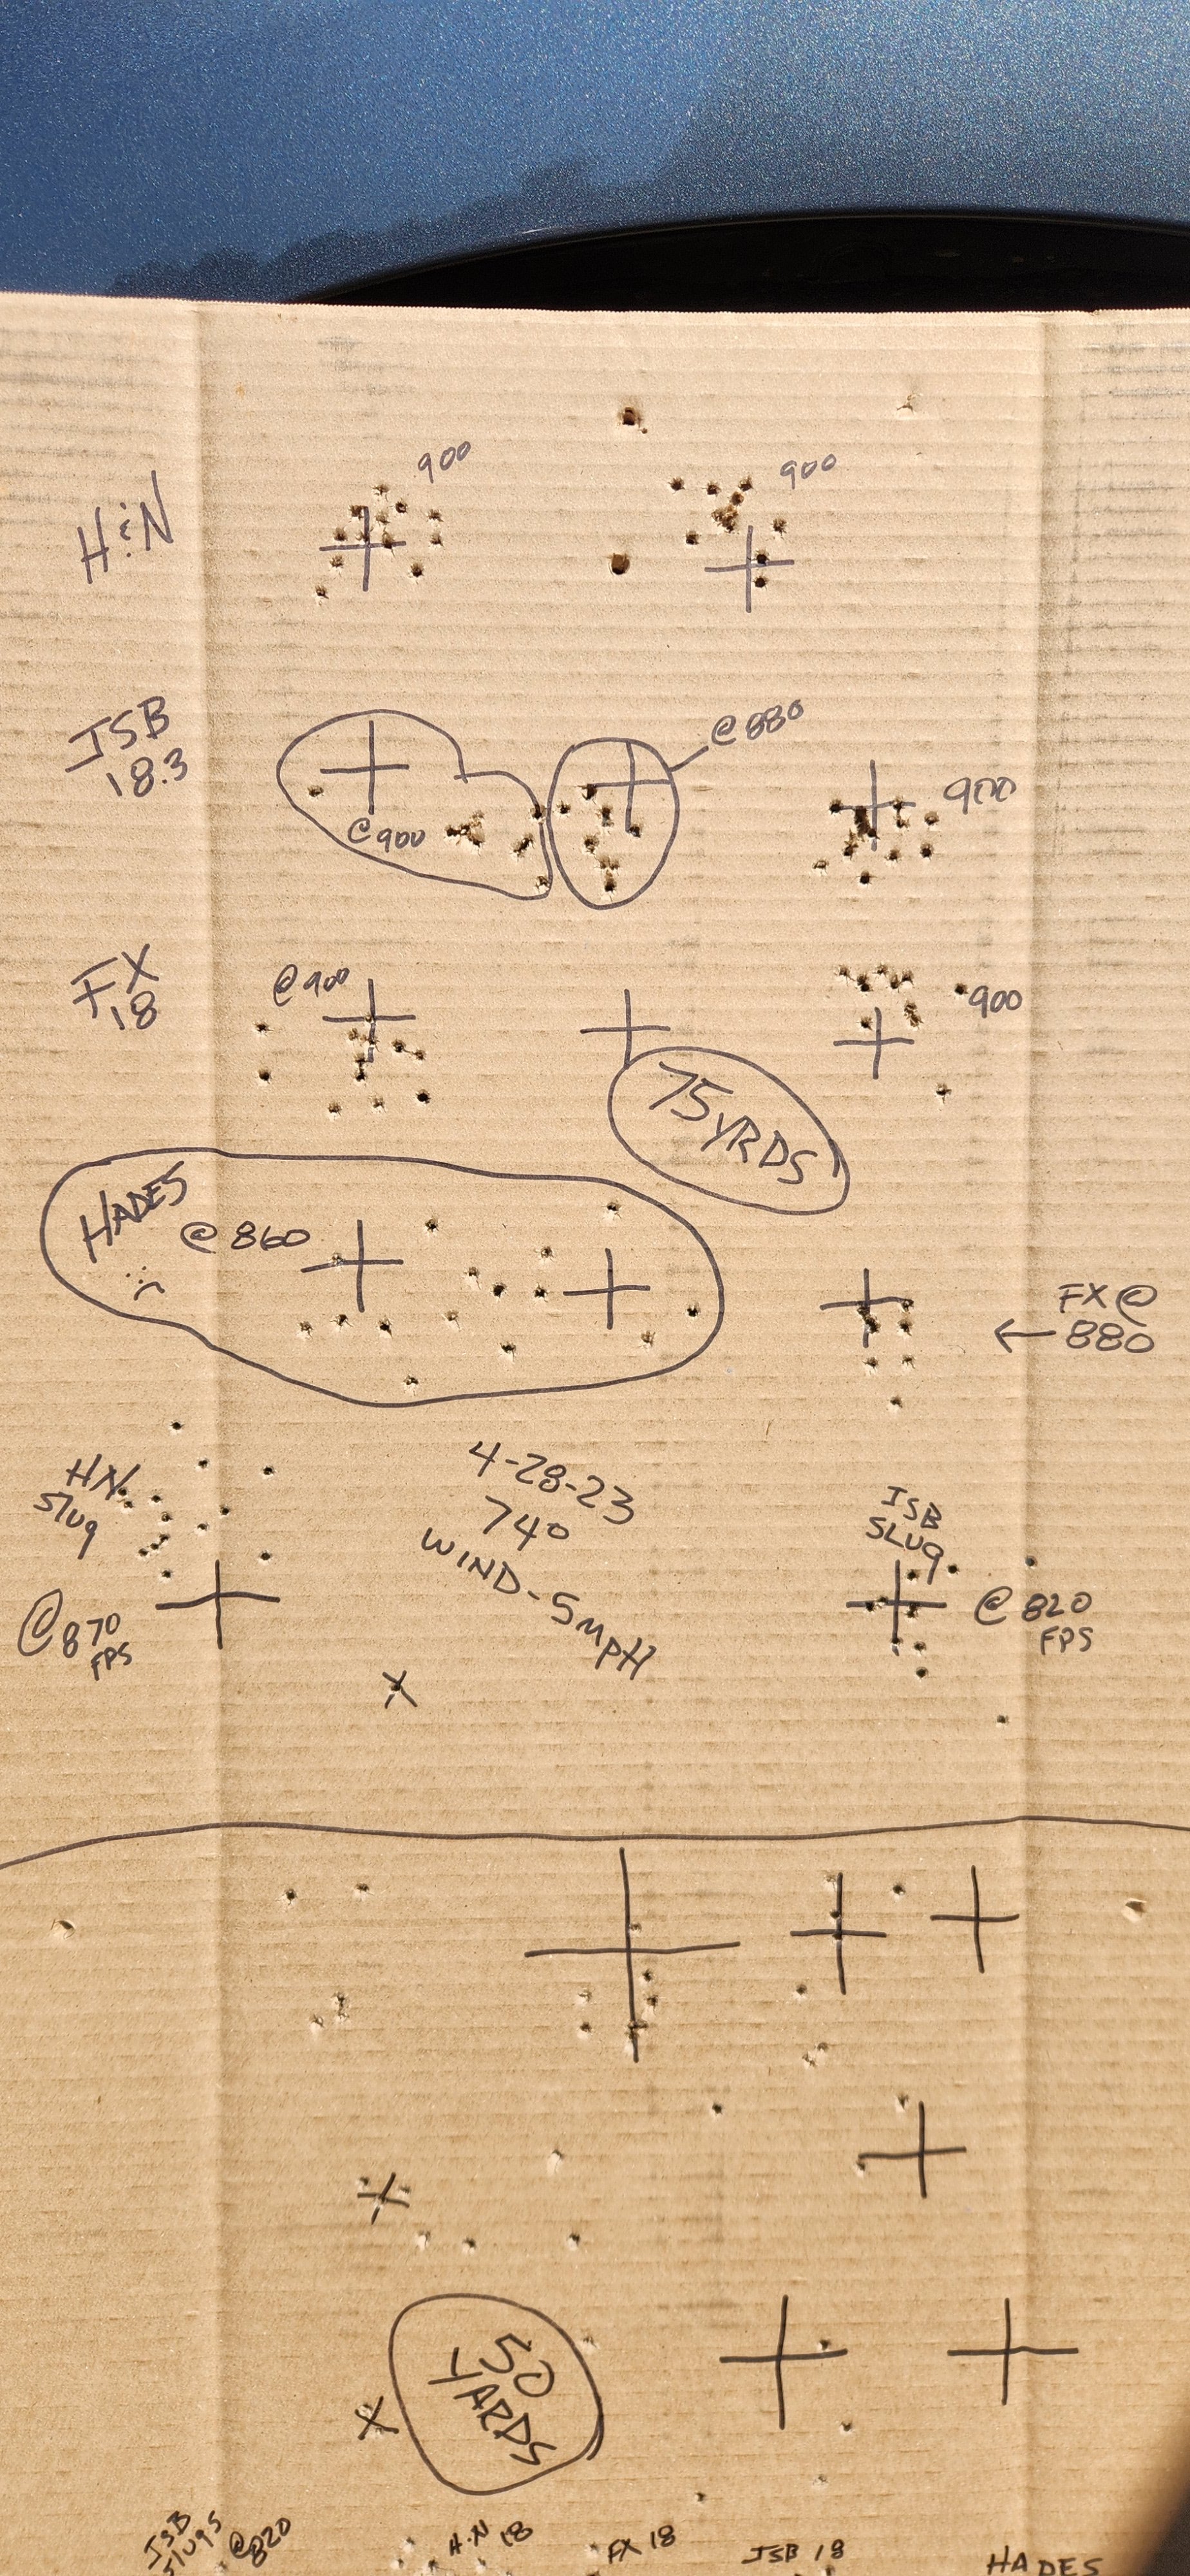 900
900
H&N
JSB
18.3
@880
@900
900
FX
18
@900
900
75 YRDS
HADES
@ 860
FX @
880
HN
Slug
@870
FPS
4-28-23
74°
WIND-5mpH
JSB
SLUg
@ 820
FPS
50
YARDS
JSB
slugs
@820
H.N 18
FX 18
JSB 18
HADES